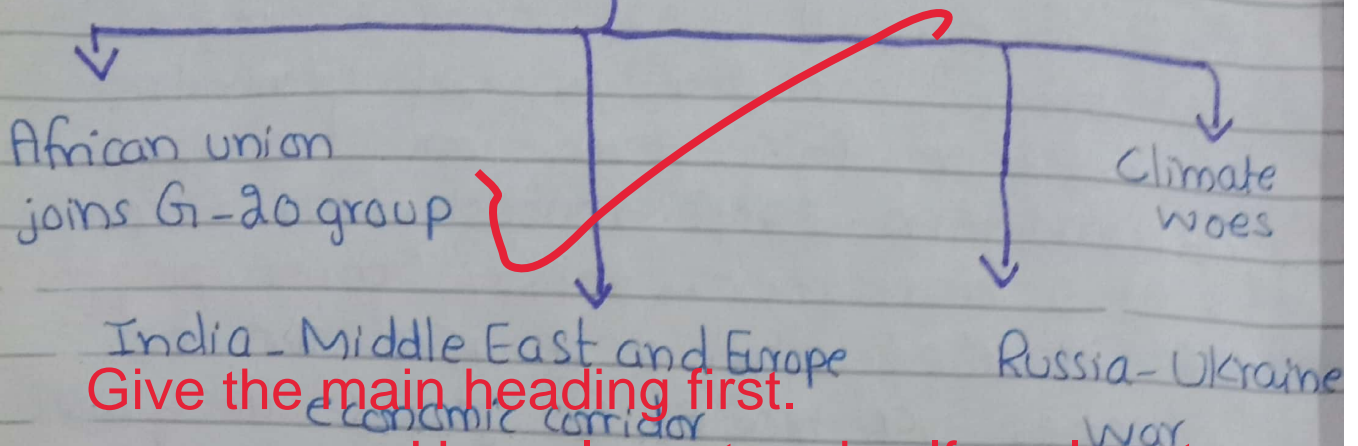 African union
joins G-20 group
Climate
woes
India-Middle East and Europe
economic corridor
Russia-Ukraine
war
Give the main heading first.